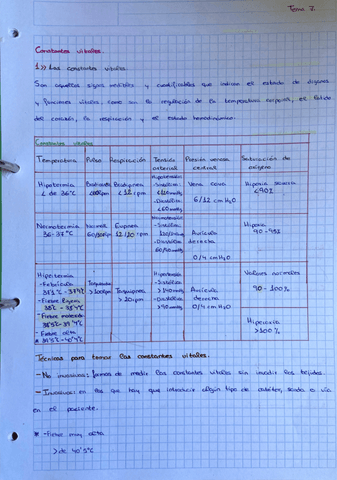 Tema 7.
Constantes vitales.
1>> Las constantes vitales.
Son aquellos signos medibles y cuantificables que indican el estado de órganos
y funciones vitales como son la regulación de la temperatura corporal, el latido
del corazón, la respiración y el estado hemodinámico.
Constantes vitales
Temperatura Pulso Respiración Tensión arterial Presión venosa central Saturación de oxígeno
Hipotermia < de 36°C
Bradipnea < 12 rpm
Hipotensión - Sistólica - Diastólica < 60 mmHg
Vena cava 6/12 cm H2O
Hipoxia severa < 90%
Normotermia 36-37°C
Normal
Eupnea 12/20 rpm
Normotensión - Sistólica - Diastólica
Aurícula derecha 0/4 cm H2O
Hipoxia
Hipertermia
- Febrícula
- Fiebre ligera
- Fiebre moderada
- Fiebre alta
Taquicardia > 100 ppm
Taquipnea > 20 rpm
Hipertensión - Sistólica > 140 mmHg - Diastólica > 90 mmHg
Aurícula derecha 0/4 cm H2O
Valores normales 90 - 100%
Hiperoxia > 100%
Técnicas para tomar las constantes vitales.
- No invasivas: formas de medir las constantes vitales sin invadir los tejidos.
- Invasivas: en las que hay que introducir algún tipo de catéter, sonda o vía
en el paciente.
* - Fiebre muy alta
> de 40'5°C